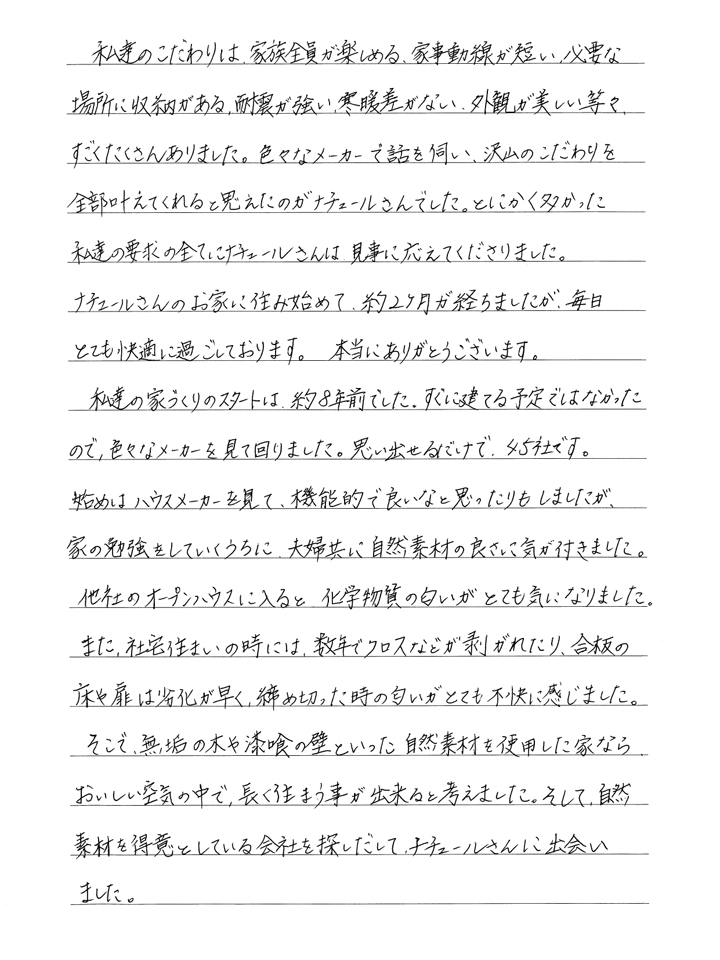 私達のこだわりは、家族全員が楽しめる、家事動線が短い、必要な
場所に収納がある、耐震が強い、寒暖差がない、外観が美しい等々、
すごくたくさんありました。色々なメーカーで話を伺い、沢山のこだわりを
全部叶えてくれると思えたのがナチュールさんでした。とにかく多かった
私達の要求の全てにナチュールさんは見事に応えてくださりました。
ナチュールさんのお家に住み始めて、約2ヶ月が経ちましたが、毎日
とても快適に過ごしております。 本当にありがとうございます。
私達の家づくりのスタートは、約8年前でした。すぐに建てる予定ではなかった
ので、色々なメーカーを見て回りました。思い出せるだけで、45社です。
始めはハウスメーカーを見て、機能的で良いなと思ったりもしましたが、
家の勉強をしていくうちに、夫婦共に自然素材の良さに気が付きました。
他社のオープンハウスに入ると 化学物質の匂いがとても気になりました。
また、社宅住まいの時には、数年でクロスなどが剥がれたり、合板の
床や扉は劣化が早く、締め切った時の匂いがとても不快に感じました。
そこで、無垢の木や漆喰の壁といった自然素材を使用した家なら、
おいしい空気の中で、長く住まう事が出来ると考えました。そして、自然
素材を得意としている会社を探しだして、ナチュールさんに出会い
ました。